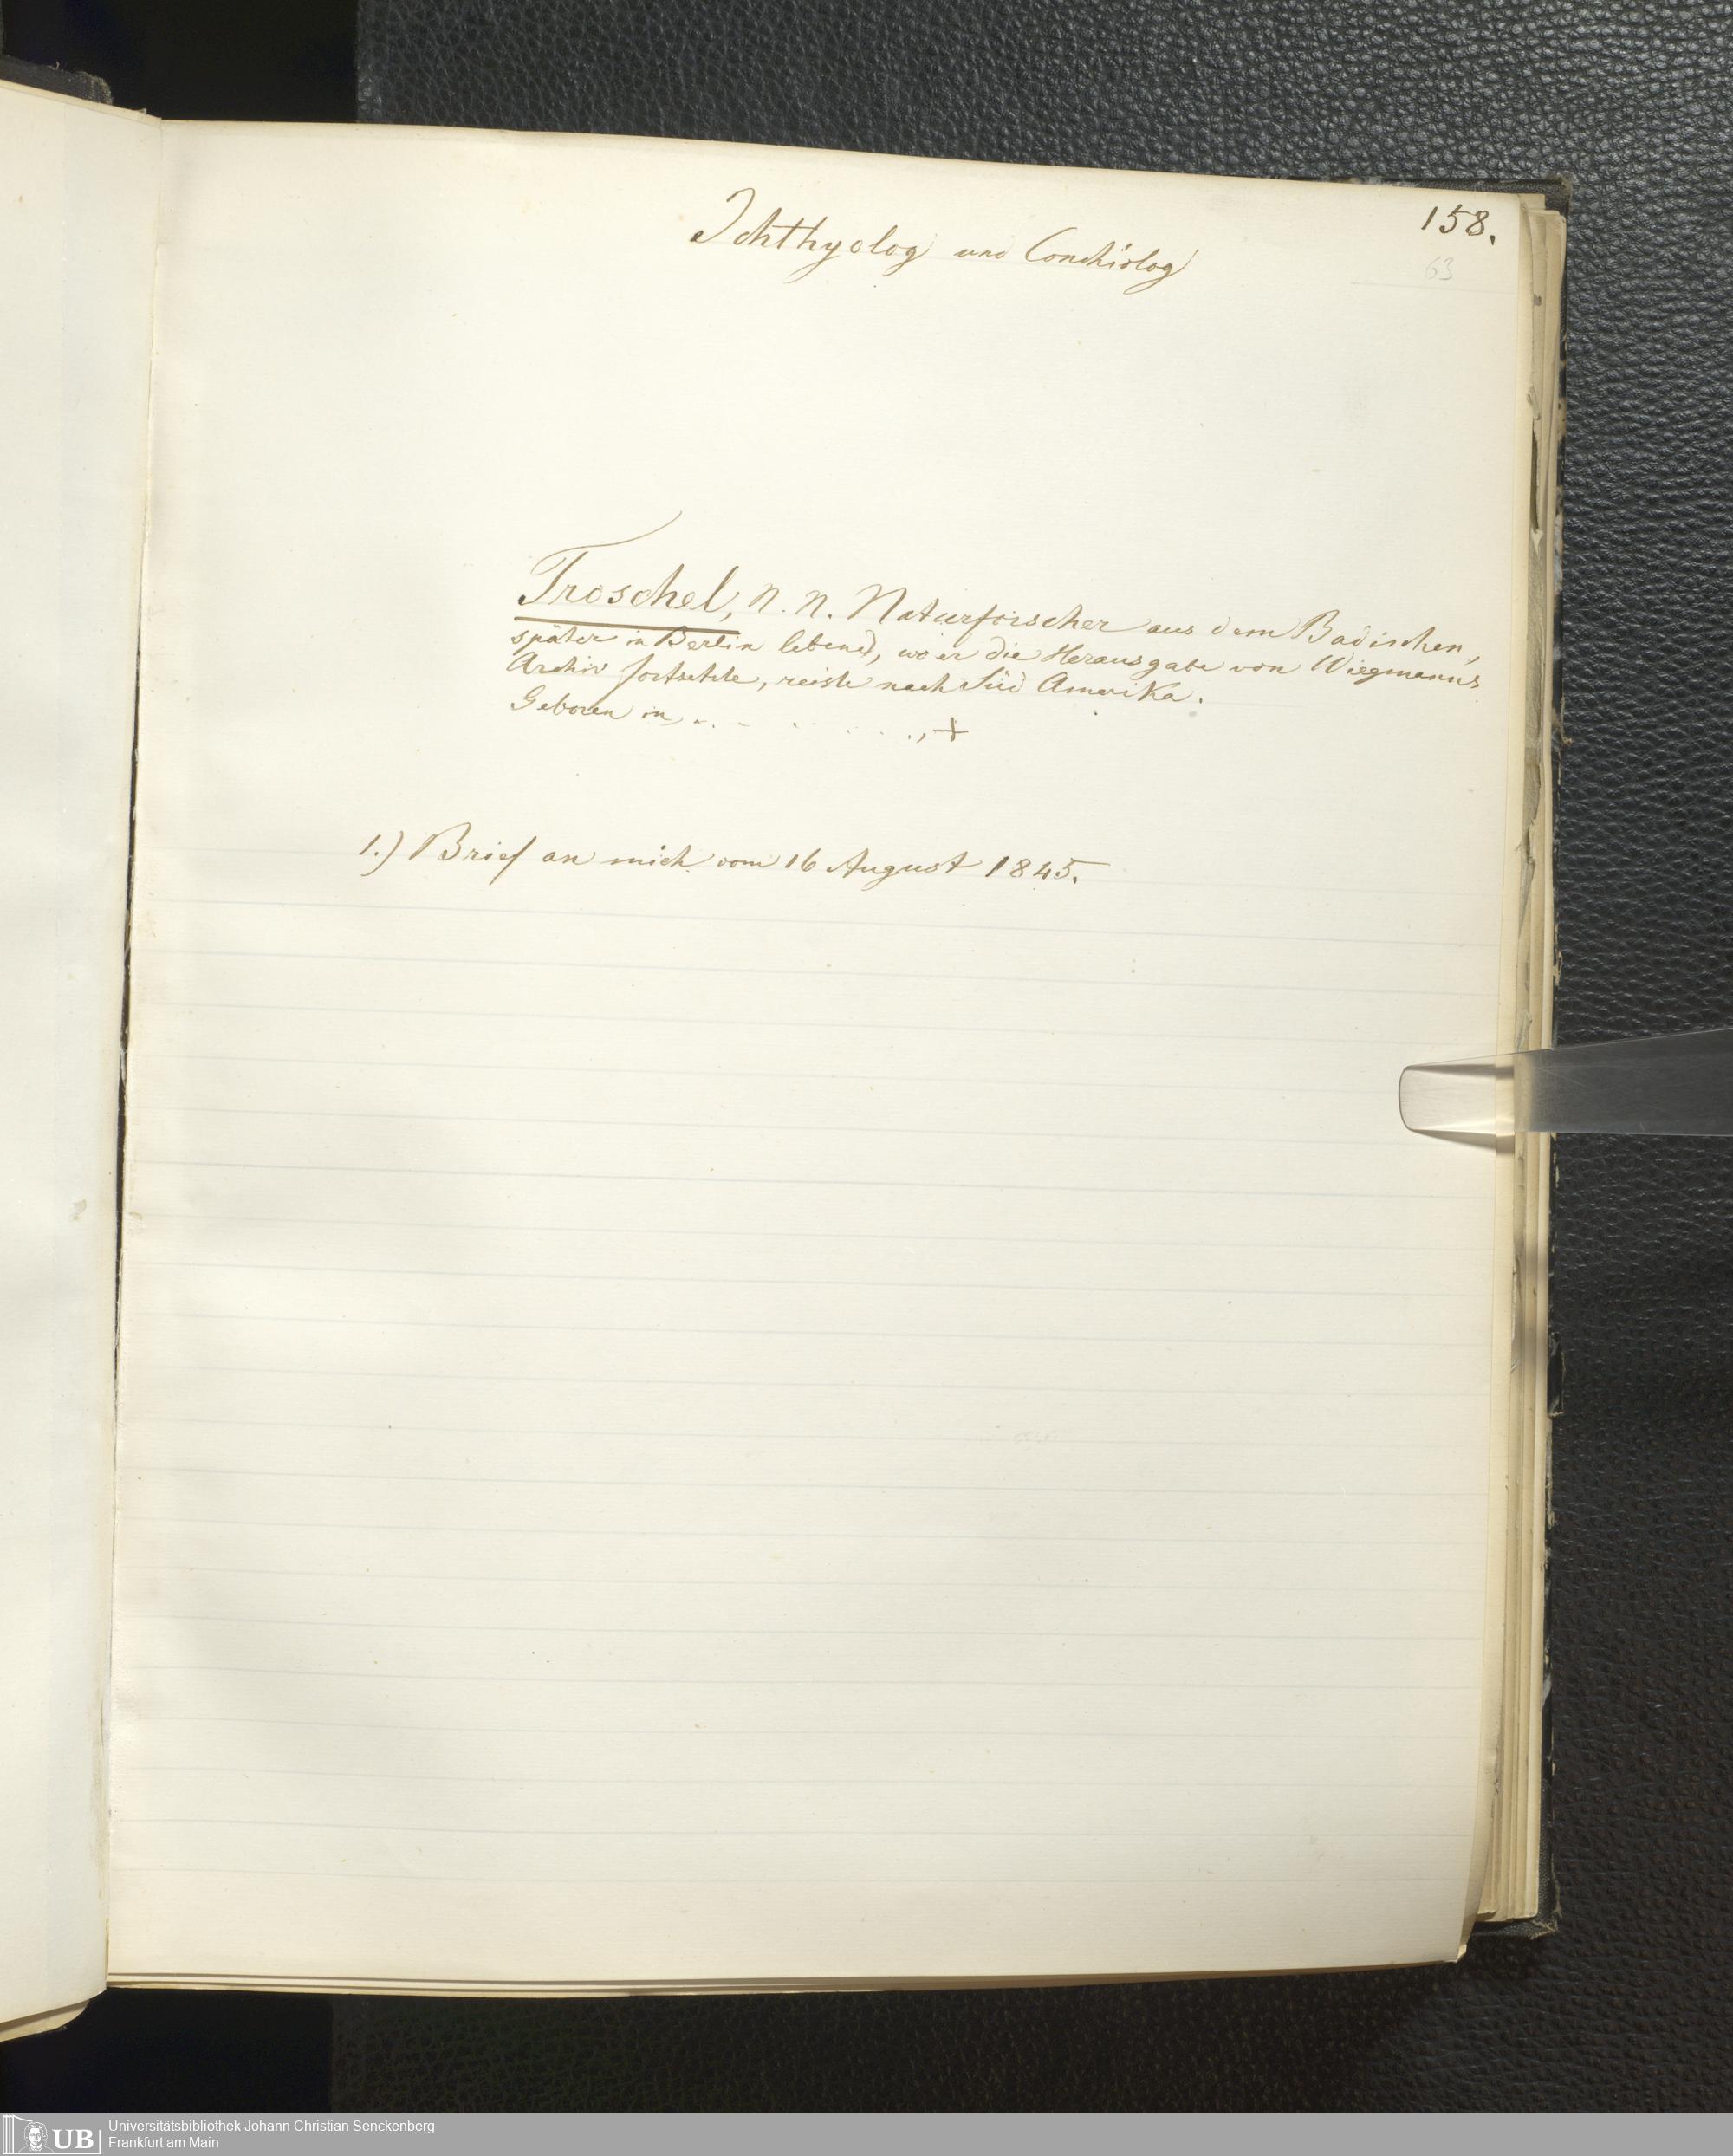 158.
63
Ichthyolog und Conchiolog
Troschel, N. N. Naturforscher aus dem Badischen,
später in Berlin lebend, wo er die Herausgabe von Wiegmanns
Archiv fortsetzte, reiste nach Süd Amerika.
Geboren in . . . . . . . . ., +
1.) Brief an mich vom 16 August 1845.
UB Universitätsbibliothek Johann Christian Senckenberg
Frankfurt am Main